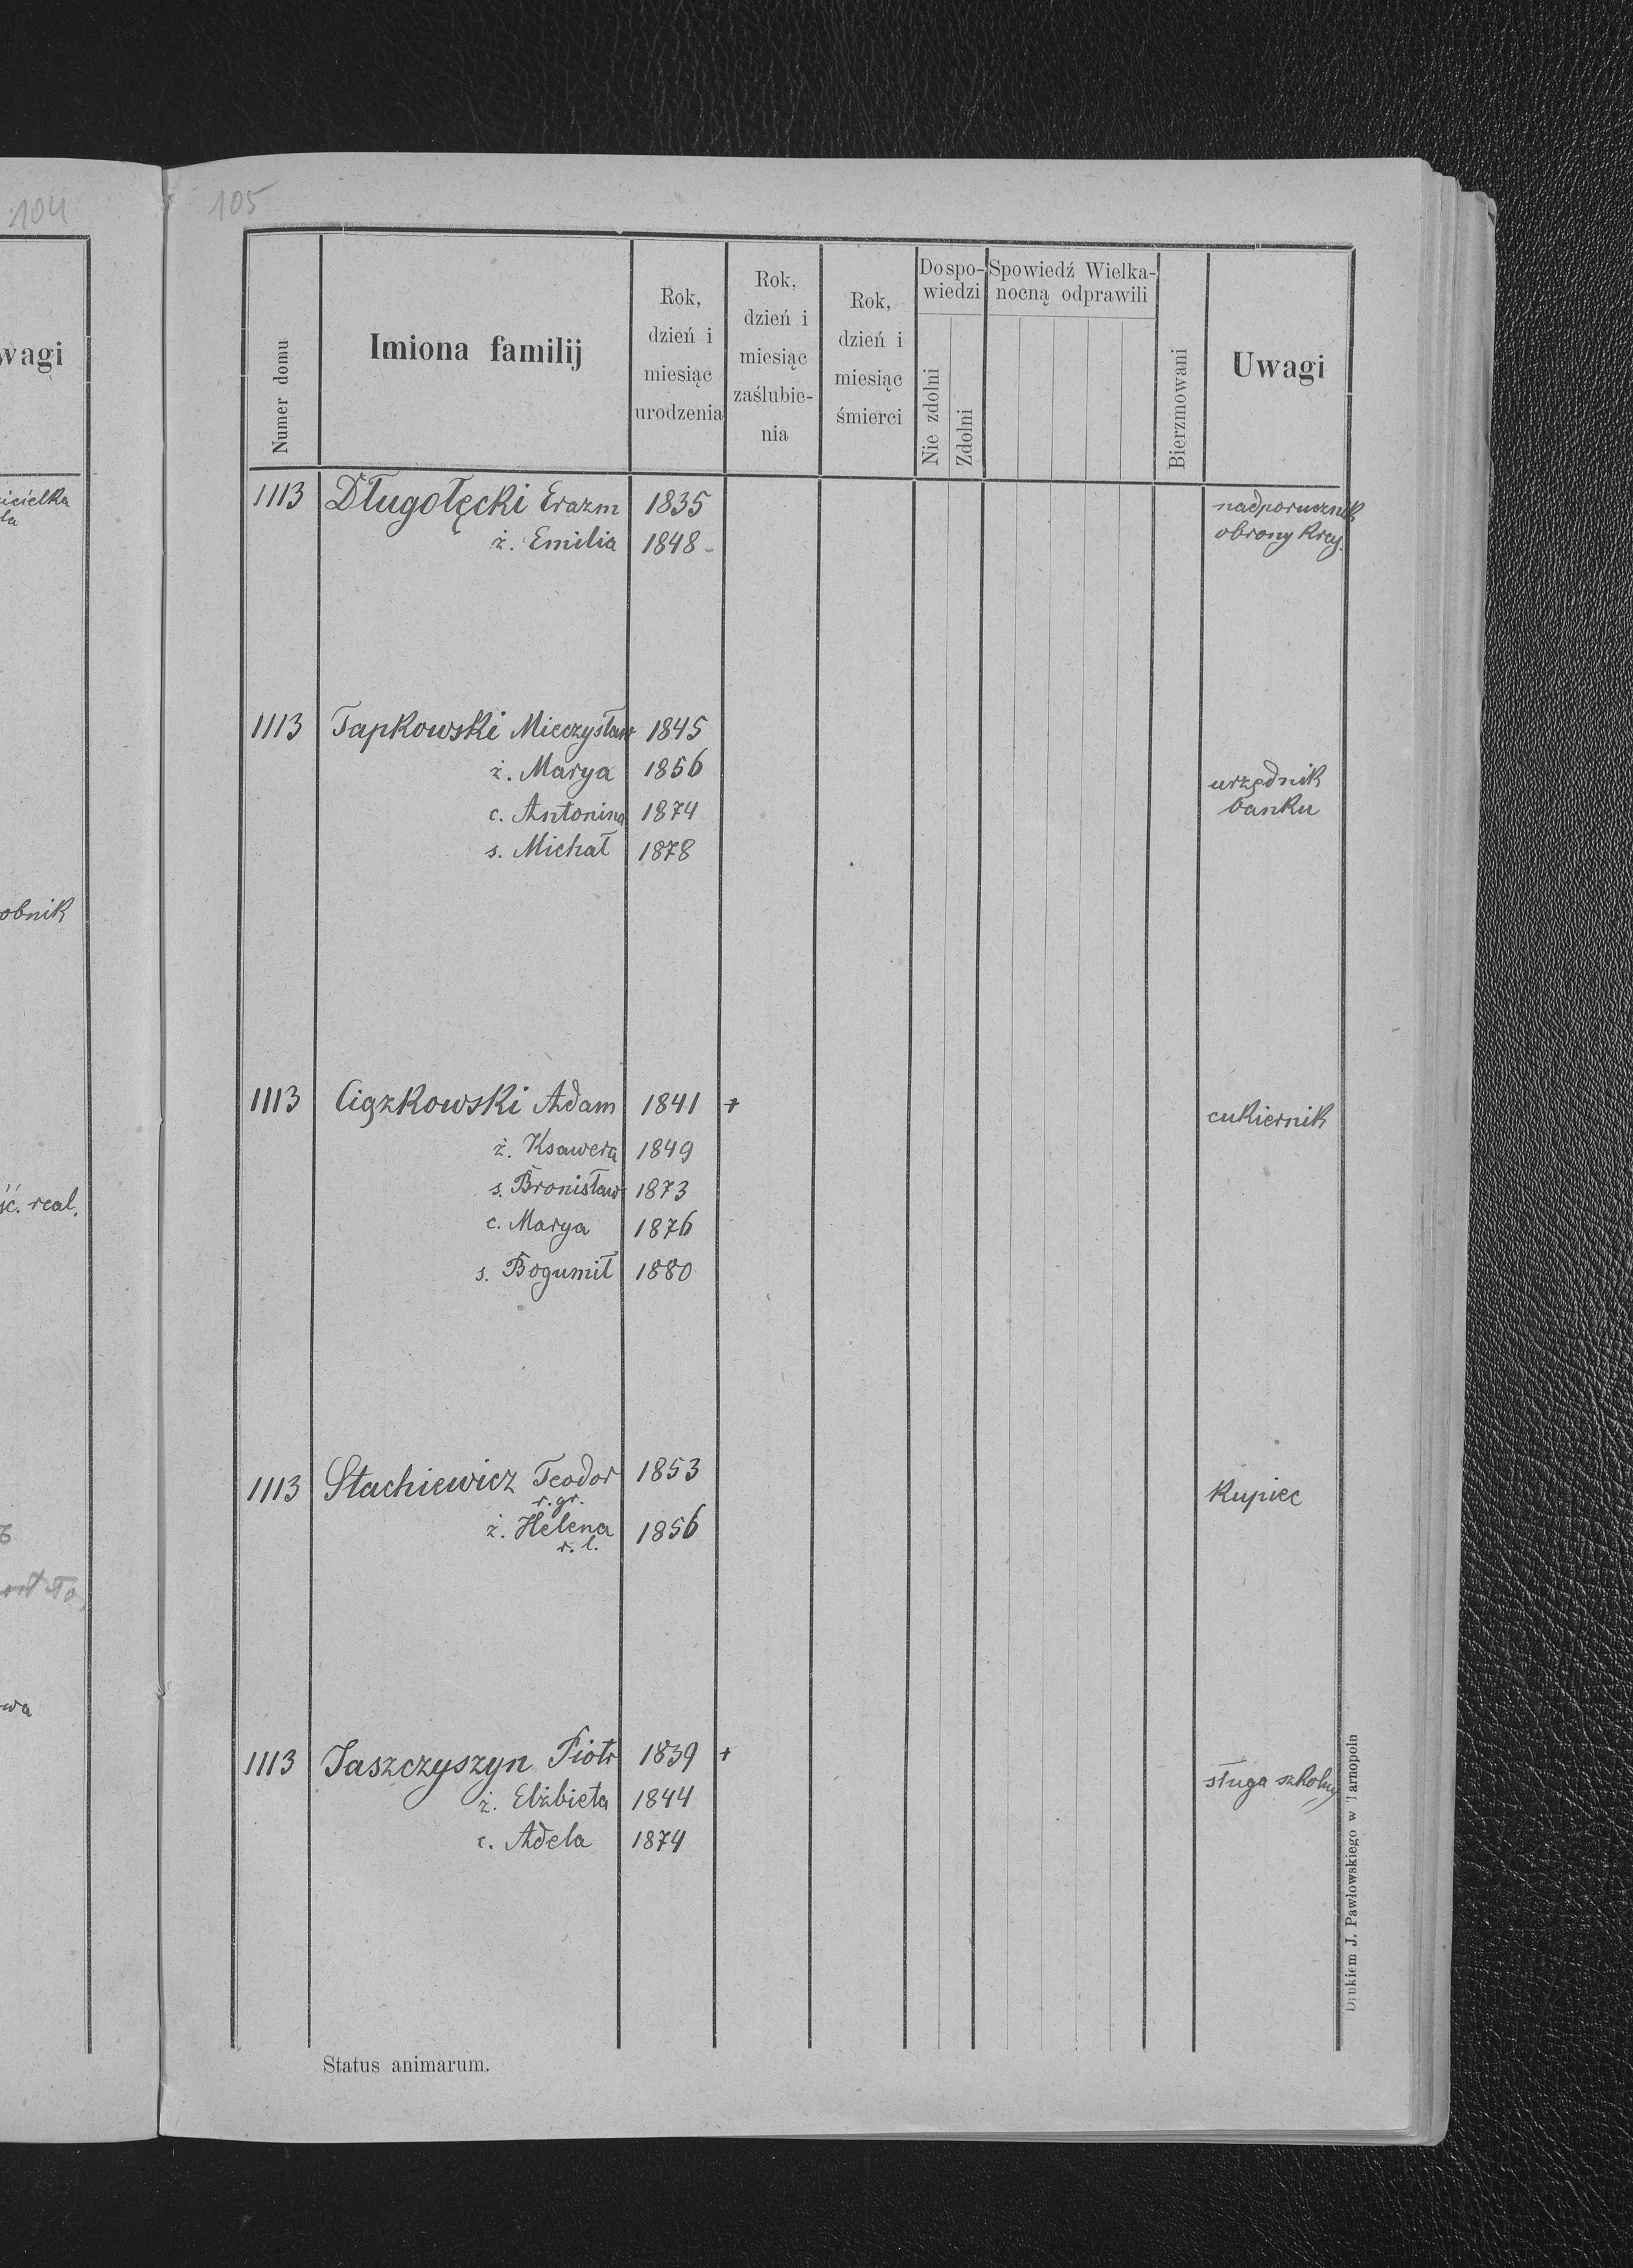 104
wagi
obnik
ść. real.
wa
105
Numer domu
Imiona familij
Rok,
dzień i
miesiąc
urodzenia
Rok,
dzień i
miesiąc
zaślubie-
nia
Rok,
dzień i
miesiąc
śmierci
Do spo-
wiedzi
Nie zdolni
Zdolni
Spowiedź Wielka-
nocną odprawili
Bierzmowani
Uwagi
1113 Długołęcki Erazm 1835 nadporucznik
ż. Emilia 1848 obrony kraj.
1113 Tapkowski Mieczysław 1845
ż. Marya 1856 urzędnik
c. Antonina 1874 banku
s. Michał 1878
1113 Ciązkowski Adam 1841 + cukiernik
ż. Ksawera 1849
s. Bronisław 1873
c. Marya 1876
s. Bogumił 1880
1113 Stachiewicz Teodor 1853 kupiec
r. gr.
ż. Helena 1856
r. l.
1113 Jaszczyszyn Piotr 1839 + sługa szkolny
ż. Elżbieta 1844
c. Adela 1874
Status animarum.
Drukiem J. Pawłowskiego w Tarnopoln